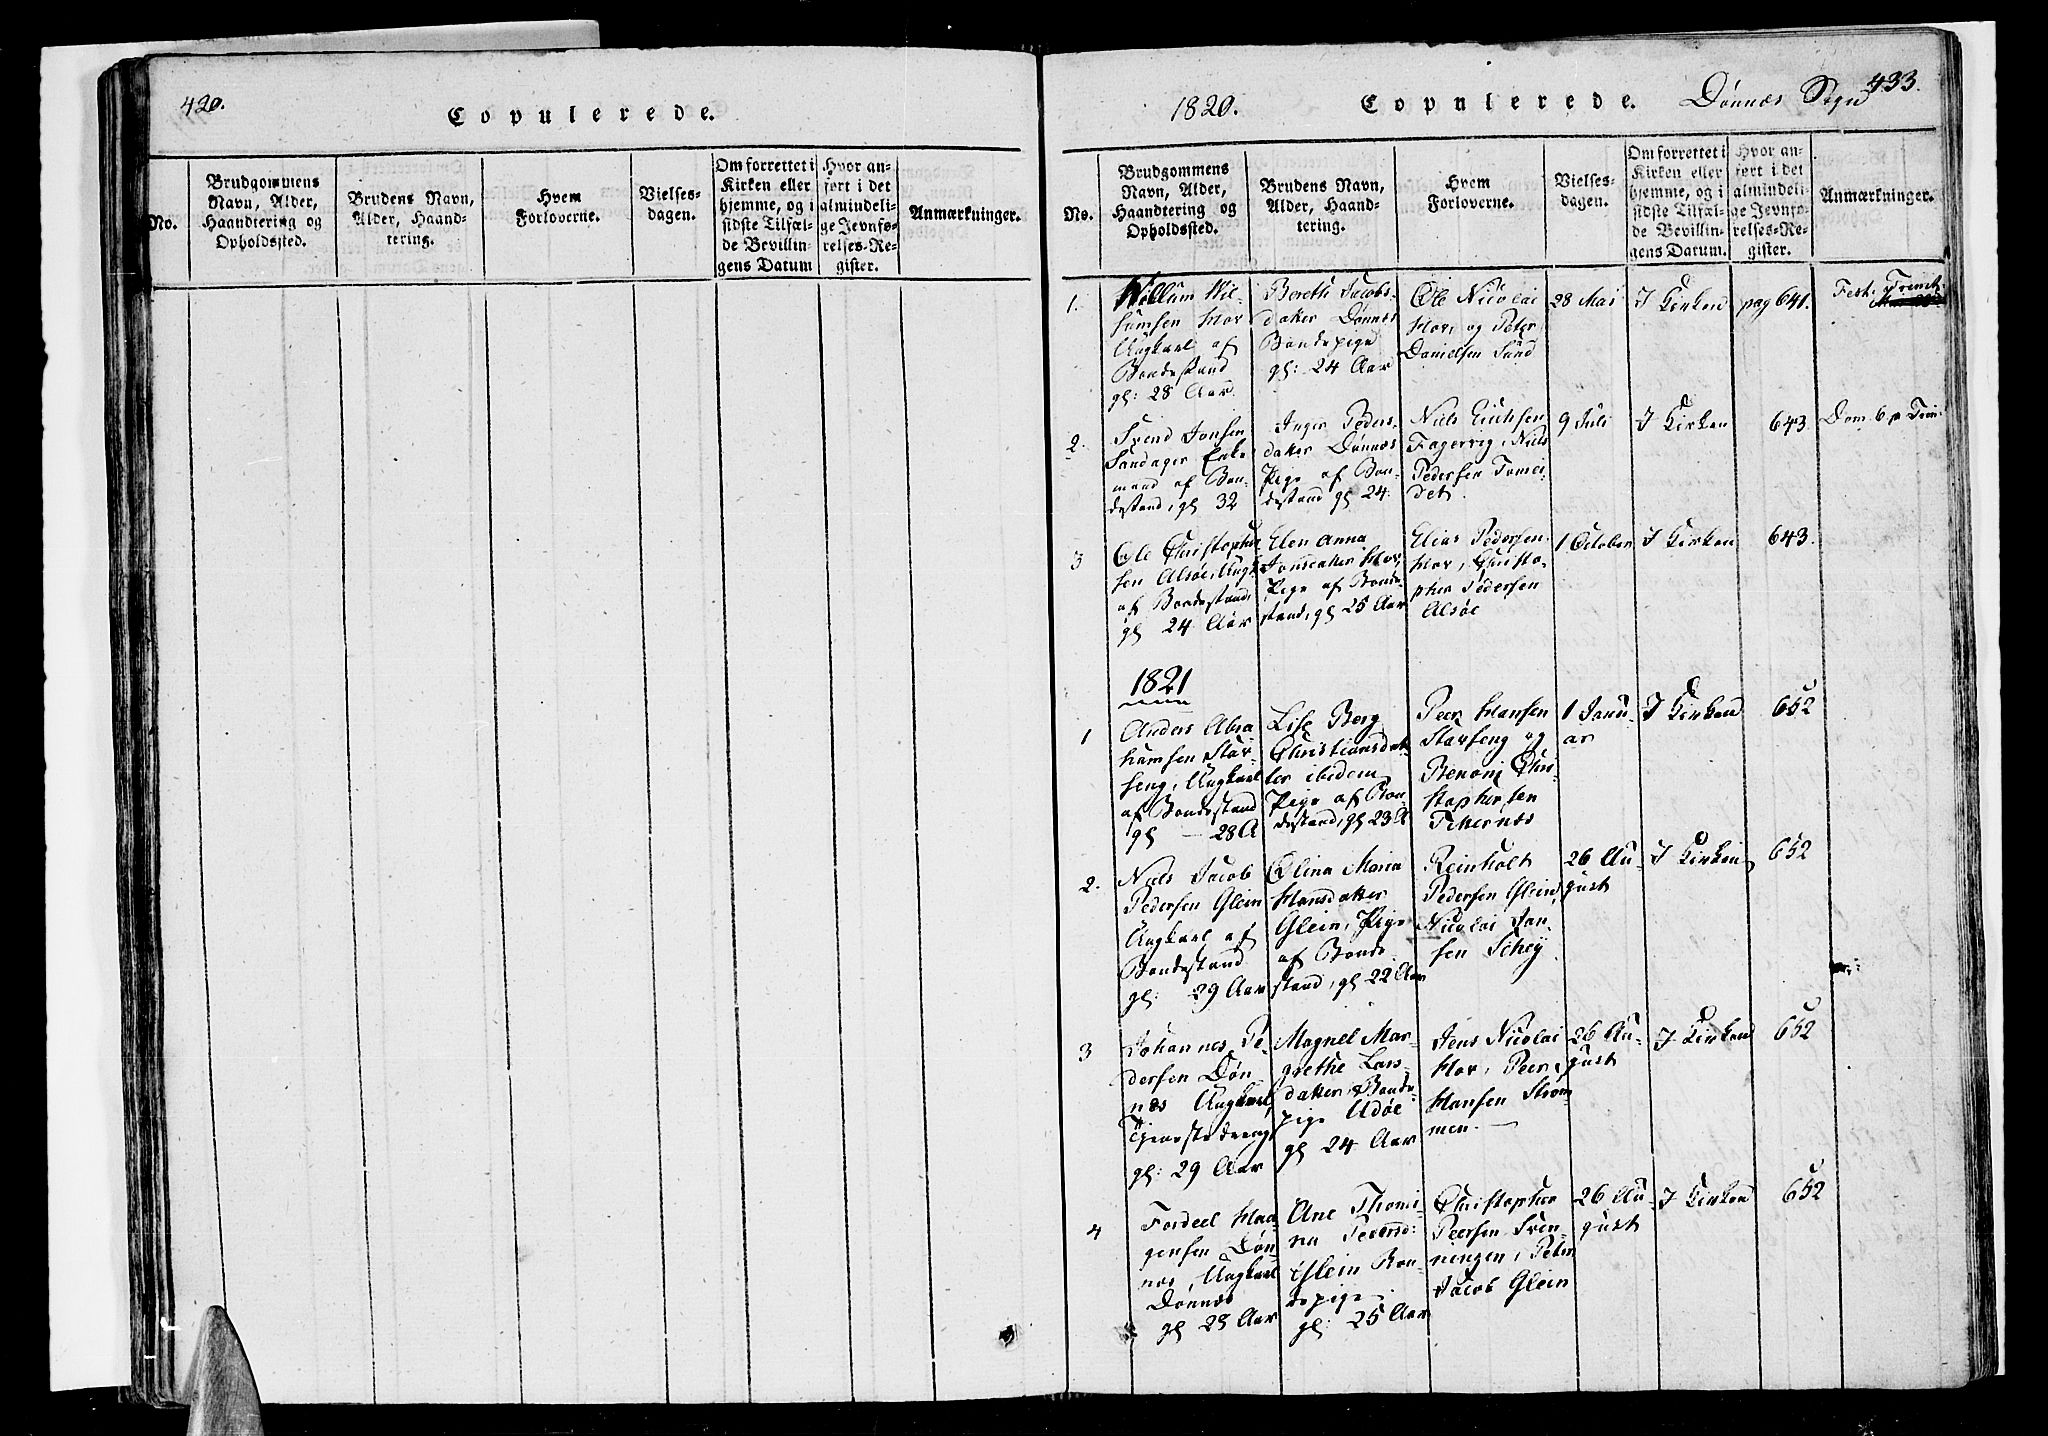 420.
Copulerede.
No.
Brudgommens
Navn, Alder,
Haandtering og
Opholdssted.
Brudens Navn,
Alder, Haand-
tering.
Hvem
Forloverne.
Vielses-
dagen.
Om forrettet i
Kirken eller
hjemme, og i
sidste Tilfæl-
de Bevillin-
gens Datum
Hvor an-
ført i det
almindeli-
ge Jevnfø-
relses-Re-
gister.
Anmærkninger.
1820.
Copulerede.
Dönnæs Sogn
433.
No.
Brudgommens
Navn, Alder,
Haandtering og
Opholdssted.
Brudens Navn,
Alder, Haand-
tering.
Hvem
Forloverne.
Vielses-
dagen.
Om forrettet i
Kirken eller
hjemme, og i
sidste Tilfæl-
de Bevillin-
gens Datum.
Hvor an-
ført i det
almindeli-
ge Jevnfø-
relses-Re-
gister.
Anmærkninger.
1.
Willum Wil-
lumsen Hov
Ungkarl af
Bondestand
gl: 28 Aar.
Bereth Jacobs-
datter Dönnes
Bondepige
gl: 24 Aar
Ole Nicolai
Hov, og Peter
Danielsen Sund
28 Mai
I Kirken
pag 641.
Fest. Trinit.
2.
Svend Jonsen
Sandager Enke
mand af Bon-
destand, gl 32
Inger Peders-
datter Dönnæs
Pige af Bon-
destand gl 24
Niels Erichsen
Fagervig, Niels
Pedersen Tomei-
det.
9 Juli
I Kirken
643.
Dom. 6 p Trin.
3
Ole Christopher
sen Alsöe, Ungk
af Bondestand
gl 24 Aar
Elen Anna
Jonsdatter Hov,
Pige af Bonde-
stand, gl 25 Aar
Elias Pedersen
Hov, Christo-
pher Pedersen
Alsöe
1 October
I Kirken
643.
1821
1
Anders Abra
hamsen Stor-
seng, Ungkarl
af Bondestand
gl — 28 A
Lise Berg
Christiansdat-
ter ibidem
Pige af Bon-
destand, gl 23 A
Peer Hansen
Storseng og
Benoni Chri-
stophersen
Titternæs
1 Janu-
ar
I Kirken
652
2.
Niels Jacob
Pedersen Glein
Ungkarl af
Bondestand
gl: 29 Aar
Olina Maria
Hansdatter
Glein, Pige
af Bonde-
stand, gl 22 Aar
Reinholt
Pedersen Glein,
Nicolai Jan-
sen Schey
26 Au-
gust
I Kirken
652
3
Johannes Pe-
dersen Dön
næs Ungkarl,
Tjenestedreng
gl: 29 Aar
Magnel Mar-
grethe Lars-
datter, Bonde-
pige Udöe
gl 24 Aar
Jens Nicolai
Hov, Peer
Hansen Strom-
men.
26 Au-
gust
I Kirken
652
4
Fordeel Haa-
gensen Dön-
næs, Ungkarl
Dönnæs
gl 28 Aar
Ane Thomi-
na Pedersd:
Glein Bon-
depige
gl: 25 Aar
Christopher
Peersen Sven-
ningen, Peter
Jacob Glein
26 Au-
gust
I Kirken
652